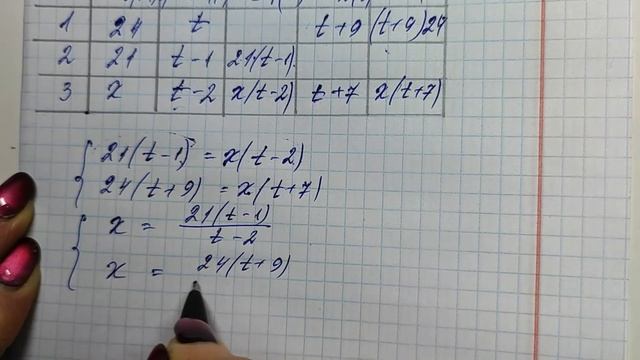 1 24 t t+9 (t+9)24
2 21 t-1 21(t-1)
3 x t-2 x(t-2) t+7 x(t+7)
21(t-1) = x(t-2)
24(t+9) = x(t+7)
x = 21(t-1)
t-2
x = 24(t+9)